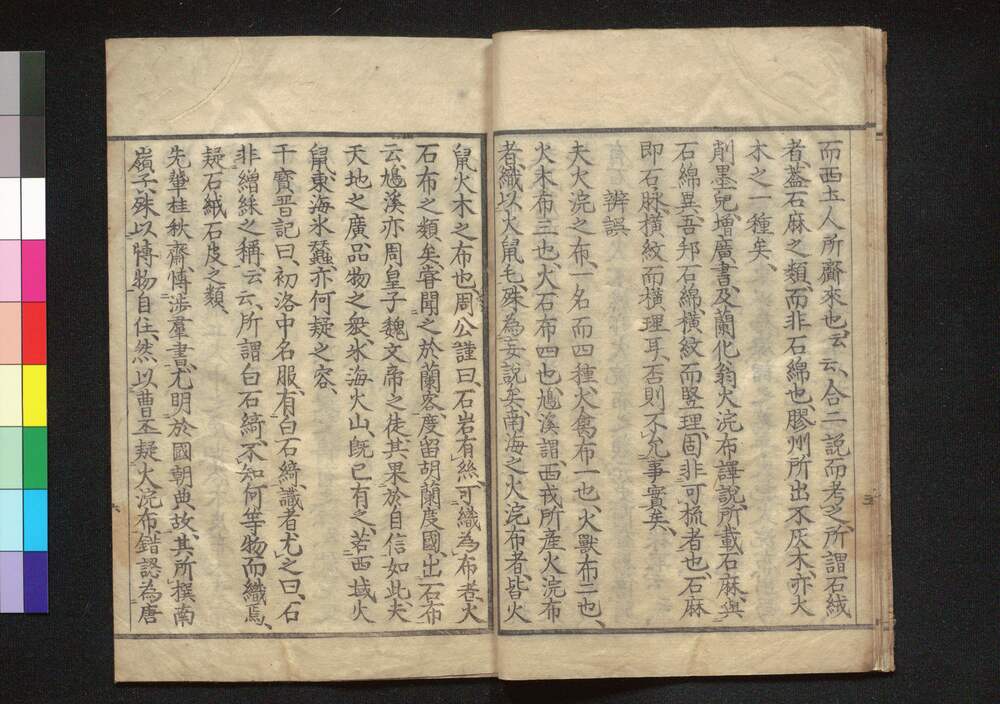 而西土人所齎來也云云合二說而考之所謂石絨
者蓋石麻之類而非石綿也膠州所出不灰木亦火
木之一種矣
削墨兒增廣書及蘭化翁火浣布譯說所載石麻與
石綿異吾邦石綿橫紋而竪理固非可梳者也石麻
即石脉橫紋而橫理耳否則不允事實矣
辨誤
夫火浣之布一名而四種火禽布一也火獸布二也
火木布三也火石布四也鳩溪謂西戎所産火浣布
者織以火鼠毛殊為妄說矣南海之火浣布者皆火
鼠火木之布也周公謹曰石岩有絲可織為布者火
石布之類矣甞聞之於蘭客度留胡蘭度國出石布
云鳩溪亦周皇子魏文帝之徒其果於自信如此夫
天地之廣品物之衆氷海火山既已有之若西域火
鼠東海氷蠶亦何疑之容
干寶晋記曰初洛中名服有白石綺識者尤之曰石
非繒綵之稱云云所謂白石綺不知何等物而織焉
疑石絨石皮之類
先軰桂秋齋博渉羣書尤明於國朝典故其所撰南
嶺子殊以博物自任然以曹丕疑火浣布錯認為唐